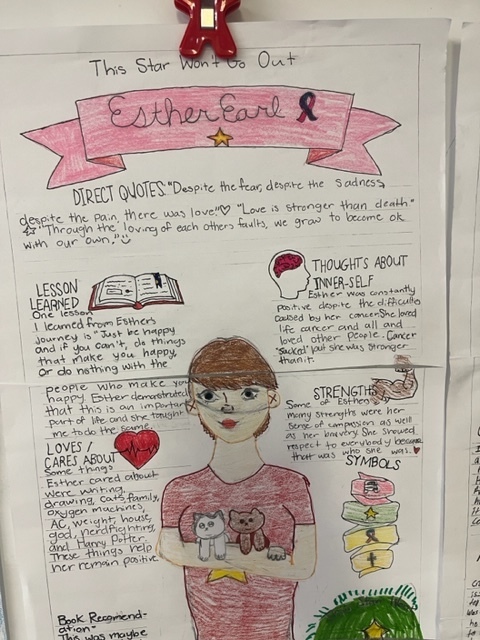 This Star Won't Go Out
Esther Earl
DIRECT QUOTES: "Despite the fear, despite the sadness,
despite the pain, there was love." "Love is stronger than death"
"Through the loving of each others faults, we grow to become ok
with our own."
LESSON
LEARNED
One lesson
I learned from Esther's
journey is "Just be happy
and if you can't, do things
that make you happy,
Or do nothing with the
people who make you
happy" Esther demonstrated
that this is an important
part of life and she taught
me to do the same.
LOVES/
CARES ABOUT
Some things
Esther cared about
were writing,
drawing, cats, family,
oxygen machines,
AC, weight, house,
god, nerdfighting,
and Harry Potter.
These things help
her remain positive
Book Recommend-
ation-
This was maybe
THOUGHTS ABOUT
INNER-SELF
Esther was constantly
positive despite the difficulties
caused by her cancer. She loved
life cancer and all and
loved other people. Cancer
"sucked" but she was stronger
than it.
STRENGTHS
Some of Esthers
many strengths were her
sense of compassion as well
as her bravery. She showed
respect to everybody because
that was who she was.
SYMBOLS